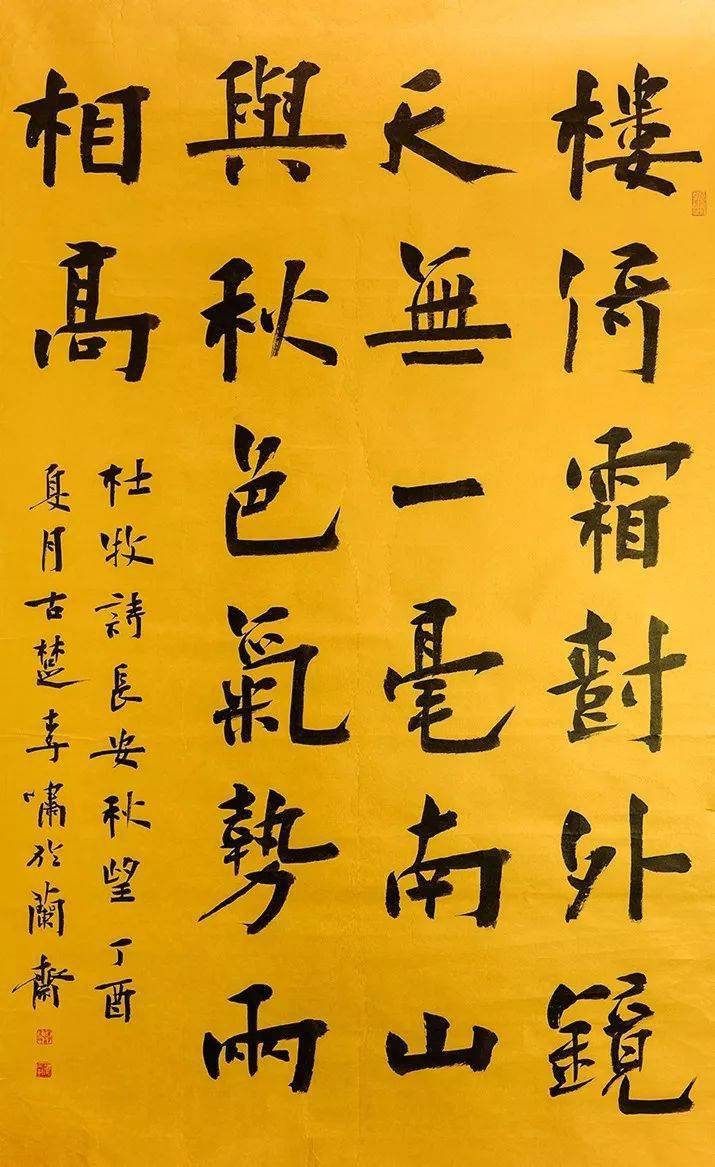 樓倚霜樹外鏡
天無一毫南山
與秋色氣勢兩
相高
杜牧詩長安秋望丁酉
夏月古楚李嘯於蘭齋